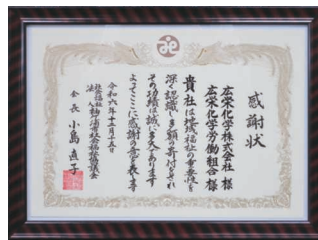 感謝状
広栄化学株式会社 様
広栄化学労働組合 様
貴社は地域福祉の重要性を
深く認識し多額の寄付をされ
その功績は誠に多大であります
よってここに感謝の意を表します
令和六年十二月二十五日
社会福祉
法人 袖ケ浦市社会福祉協議会
会長 小島直子